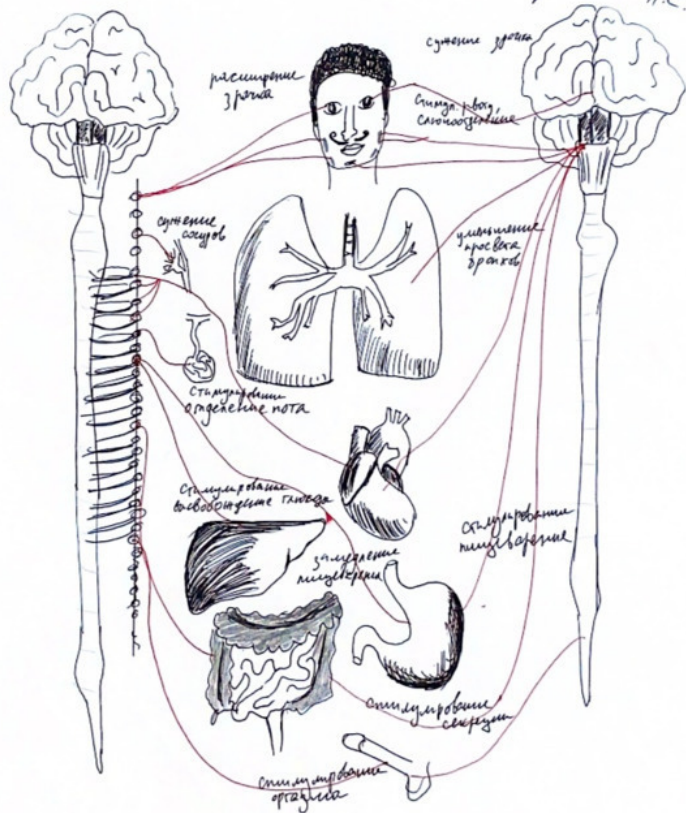 н.с.
сужение зрачка
расширение
зрачка
стимул. рвот,
слюноотделение
сужение
сосудов
уменьшение
просвета
бронхов
стимулирование
отделение пота
стимулирование
высвобождение глюкозы
стимулирование
пищеварение
замедление
пищеварения
стимулирование
секреции
стимулирование
оргазма